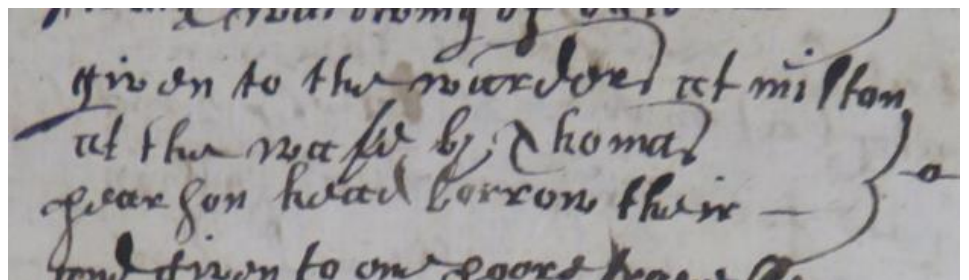 given to the warders at milton
at the wase by Thomas
pearson head borrow their —
and given to one poore